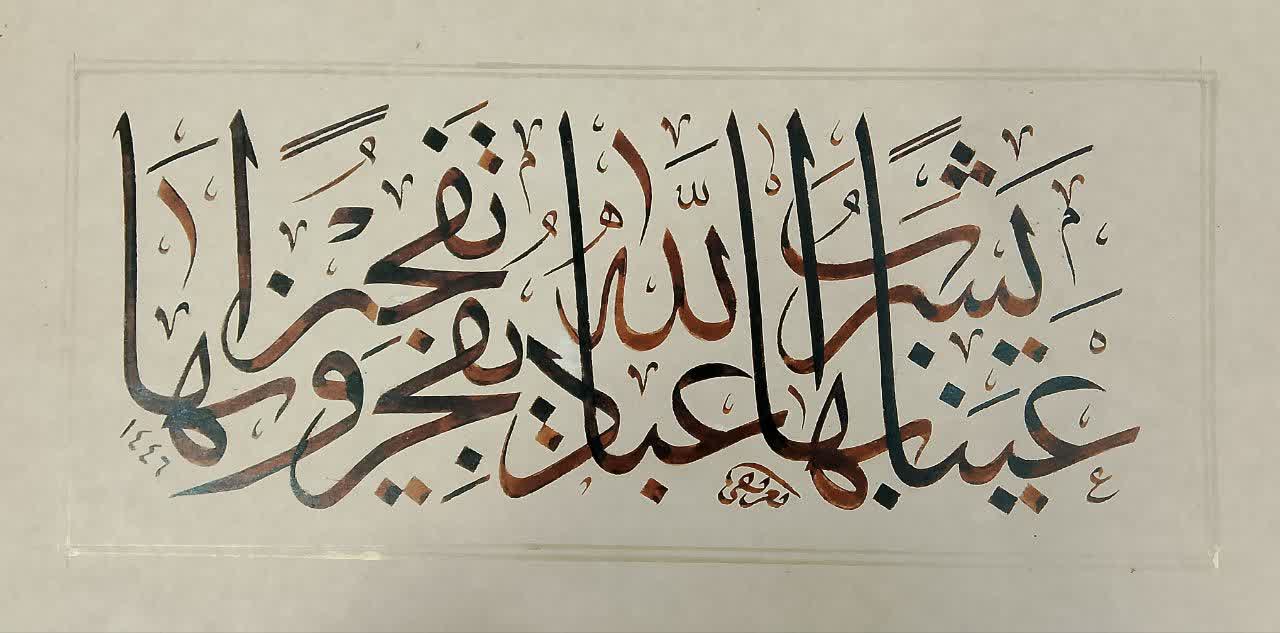 عَيْنًا يَشْرَبُ بِهَا عِبَادُ اللَّهِ يُفَجِّرُونَهَا تَفْجِيرًا
١٤٤٦